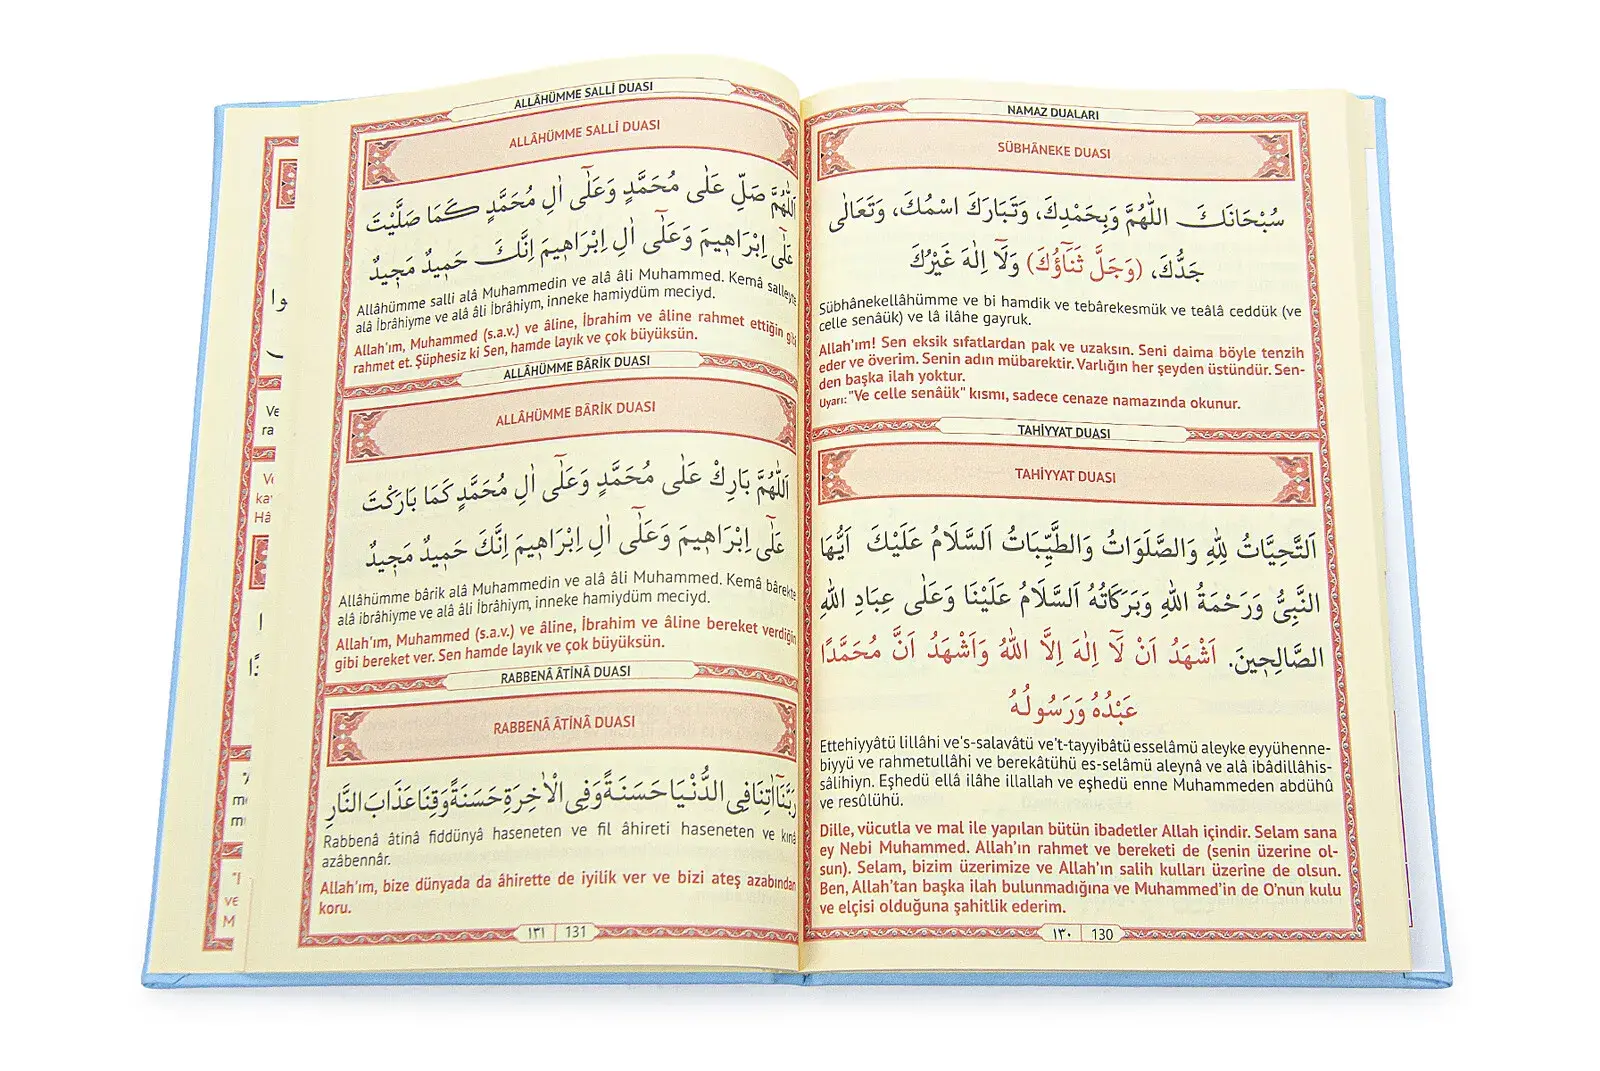 NAMAZ DUALARI
SÜBHÂNEKE DUASI
سُبْحَانَكَ اللّٰهُمَّ وَبِحَمْدِكَ، وَتَبَارَكَ اسْمُكَ، وَتَعَالٰى
جَدُّكَ، (وَجَلَّ ثَنَاؤُكَ) وَلَٓا اِلٰهَ غَيْرُكَ
Sübhânekellâhümme ve bi hamdik ve tebârekesmük ve teâlâ ceddük (ve
celle senâük) ve lâ ilâhe gayruk.
Allah'ım! Sen eksik sıfatlardan pak ve uzaksın. Seni daima böyle tenzih
eder ve överim. Senin adın mübarektir. Varlığın her şeyden üstündür. Sen-
den başka ilah yoktur.
Uyarı: "Ve celle senâük" kısmı, sadece cenaze namazında okunur.
TAHİYYAT DUASI
TAHİYYAT DUASI
اَلتَّحِيَّاتُ لِلّٰهِ وَالصَّلَوَاتُ وَالطَّيِّبَاتُ اَلسَّلَامُ عَلَيْكَ اَيُّهَا
النَّبِىُّ وَرَحْمَةُ اللّٰهِ وَبَرَكَاتُهُ اَلسَّلَامُ عَلَيْنَا وَعَلٰى عِبَادِ اللّٰهِ
الصَّالِحِينَ. اَشْهَدُ اَنْ لَٓا اِلٰهَ اِلَّا اللّٰهُ وَاَشْهَدُ اَنَّ مُحَمَّدًا
عَبْدُهُ وَرَسُولُهُ
Ettehiyyâtü lillâhi ve's-salavâtü ve't-tayyibâtü esselâmü aleyke eyyühenne-
biyyü ve rahmetullâhi ve berekâtühü es-selâmü aleynâ ve alâ ibâdillâhis-
sâlihiyn. Eşhedü ellâ ilâhe illallah ve eşhedü enne Muhammeden abdühû
ve resûlühü.
Dille, vücutla ve mal ile yapılan bütün ibadetler Allah içindir. Selam sana
ey Nebi Muhammed. Allah'ın rahmet ve bereketi de (senin üzerine ol-
sun). Selam, bizim üzerimize ve Allah'ın salih kulları üzerine de olsun.
Ben, Allah'tan başka ilah bulunmadığına ve Muhammed'in de O'nun kulu
ve elçisi olduğuna şahitlik ederim.
١٣٠ 130
ALLÂHÜMME SALLİ DUASI
ALLÂHÜMME SALLİ DUASI
اَللّٰهُمَّ صَلِّ عَلٰى مُحَمَّدٍ وَعَلٰٓى اٰلِ مُحَمَّدٍ كَمَا صَلَّيْتَ
عَلٰٓى اِبْرَاهِيمَ وَعَلٰٓى اٰلِ اِبْرَاهِيمَ اِنَّكَ حَمِيدٌ مَجِيدٌ
Allâhümme salli alâ Muhammedin ve alâ âli Muhammed. Kemâ salleyte
alâ İbrâhiyme ve alâ âli İbrâhiym, inneke hamiydüm meciyd.
Allah'ım, Muhammed (s.a.v.) ve âline, İbrahim ve âline rahmet ettiğin gibi
rahmet et. Şüphesiz ki Sen, hamde layık ve çok büyüksün.
ALLÂHÜMME BÂRİK DUASI
ALLÂHÜMME BÂRİK DUASI
اَللّٰهُمَّ بَارِكْ عَلٰى مُحَمَّدٍ وَعَلٰٓى اٰلِ مُحَمَّدٍ كَمَا بَارَكْتَ
عَلٰٓى اِبْرَاهِيمَ وَعَلٰٓى اٰلِ اِبْرَاهِيمَ اِنَّكَ حَمِيدٌ مَجِيدٌ
Allâhümme bârik alâ Muhammedin ve alâ âli Muhammed. Kemâ bârekte
alâ ibrâhiyme ve alâ âli İbrâhiym, inneke hamiydüm meciyd.
Allah'ım, Muhammed (s.a.v.) ve âline, İbrahim ve âline bereket verdiğin
gibi bereket ver. Sen hamde layık ve çok büyüksün.
RABBENÂ ÂTİNÂ DUASI
RABBENÂ ÂTİNÂ DUASI
رَبَّنَٓا اٰتِنَا فِى الدُّنْيَا حَسَنَةً وَفِى الْاٰخِرَةِ حَسَنَةً وَقِنَا عَذَابَ النَّارِ
Rabbenâ âtinâ fiddünyâ haseneten ve fil âhireti haseneten ve kınâ
azâbennâr.
Allah'ım, bize dünyada da âhirette de iyilik ver ve bizi ateş azabından
koru.
١٣١ 131